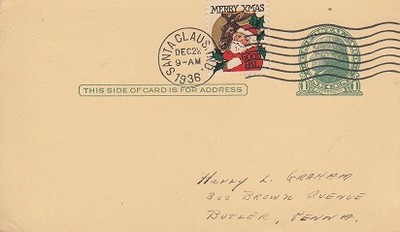 MERRY XMAS
SANTA CLAUS, IND
DEC 2
9-AM
1936
THIS SIDE OF CARD IS FOR ADDRESS
Harry L. Graham
300 Brown Avenue
Butler, Penna.